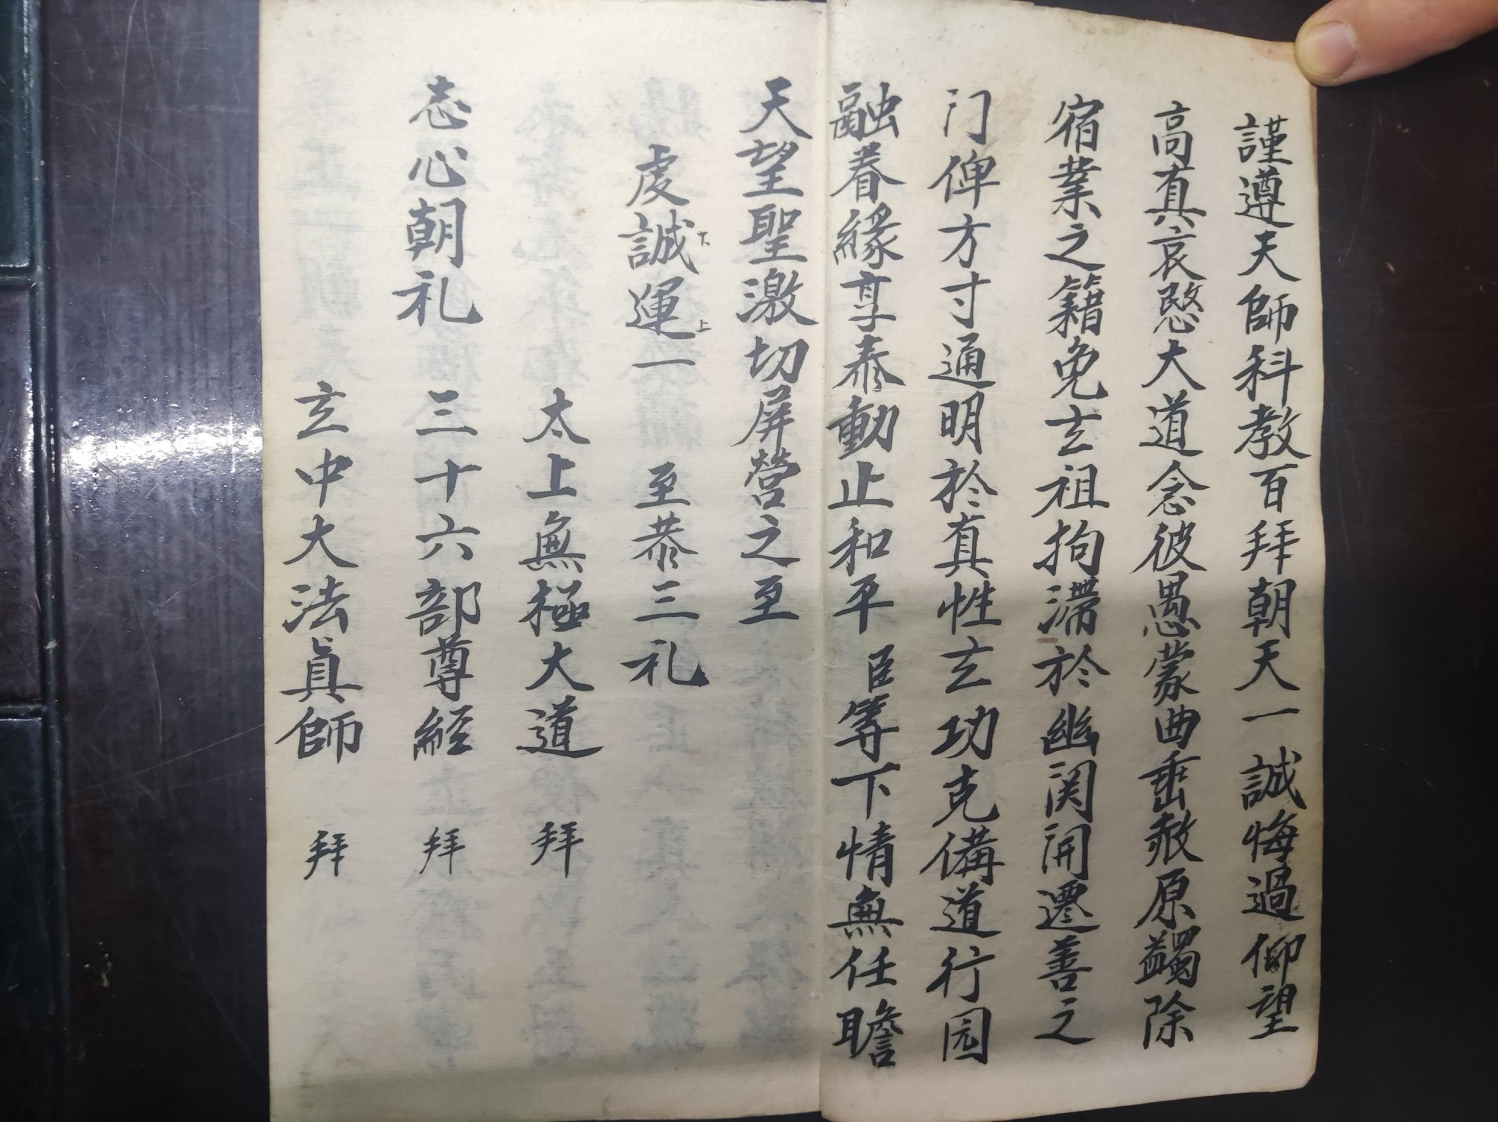 謹遵天師科教百拜朝天一誠悔過仰望
高真哀愍大道念彼愚蒙曲垂赦原蠲除
宿業之籍免玄祖拘滯於幽関開遷善之
门俾方寸通明於真性玄功克備道行园
融眷緣享泰動止和平臣等下情無任瞻
天望聖激切屏营之至
虔誠運一至恭三礼
下上
太上無極大道拜
志心朝礼三十六部尊經拜
玄中大法真師拜